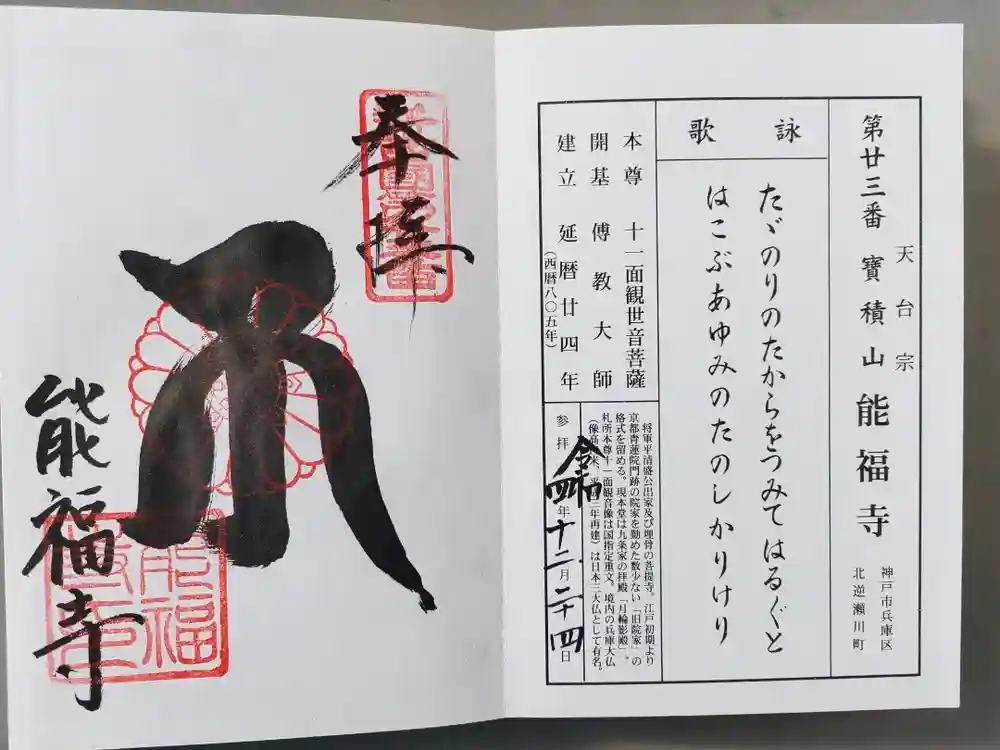 第廿三番 寶積山 能福寺
天台宗
神戸市兵庫区
北逆瀬川町
詠歌
たゞのりのたからをつみてはるぐと
はこぶあゆみのたのしかりけり
本尊 十一面観世音菩薩
開基 傳教大師
建立 延暦廿四年
(西暦八〇五年)
将軍平清盛公出家及び埋骨の菩提寺。江戸初期より
京都青蓮院門跡の院家を勤めた数少ない「旧院家」の
格式を留める。現本堂は九条家の拝殿「月輪影殿」。
札所本尊十一面観音像は国指定重文。境内の兵庫大仏
年再建)は日本三大仏として有名。
参拝 令和四年十二月二十四日
奉拝
能福寺
能福